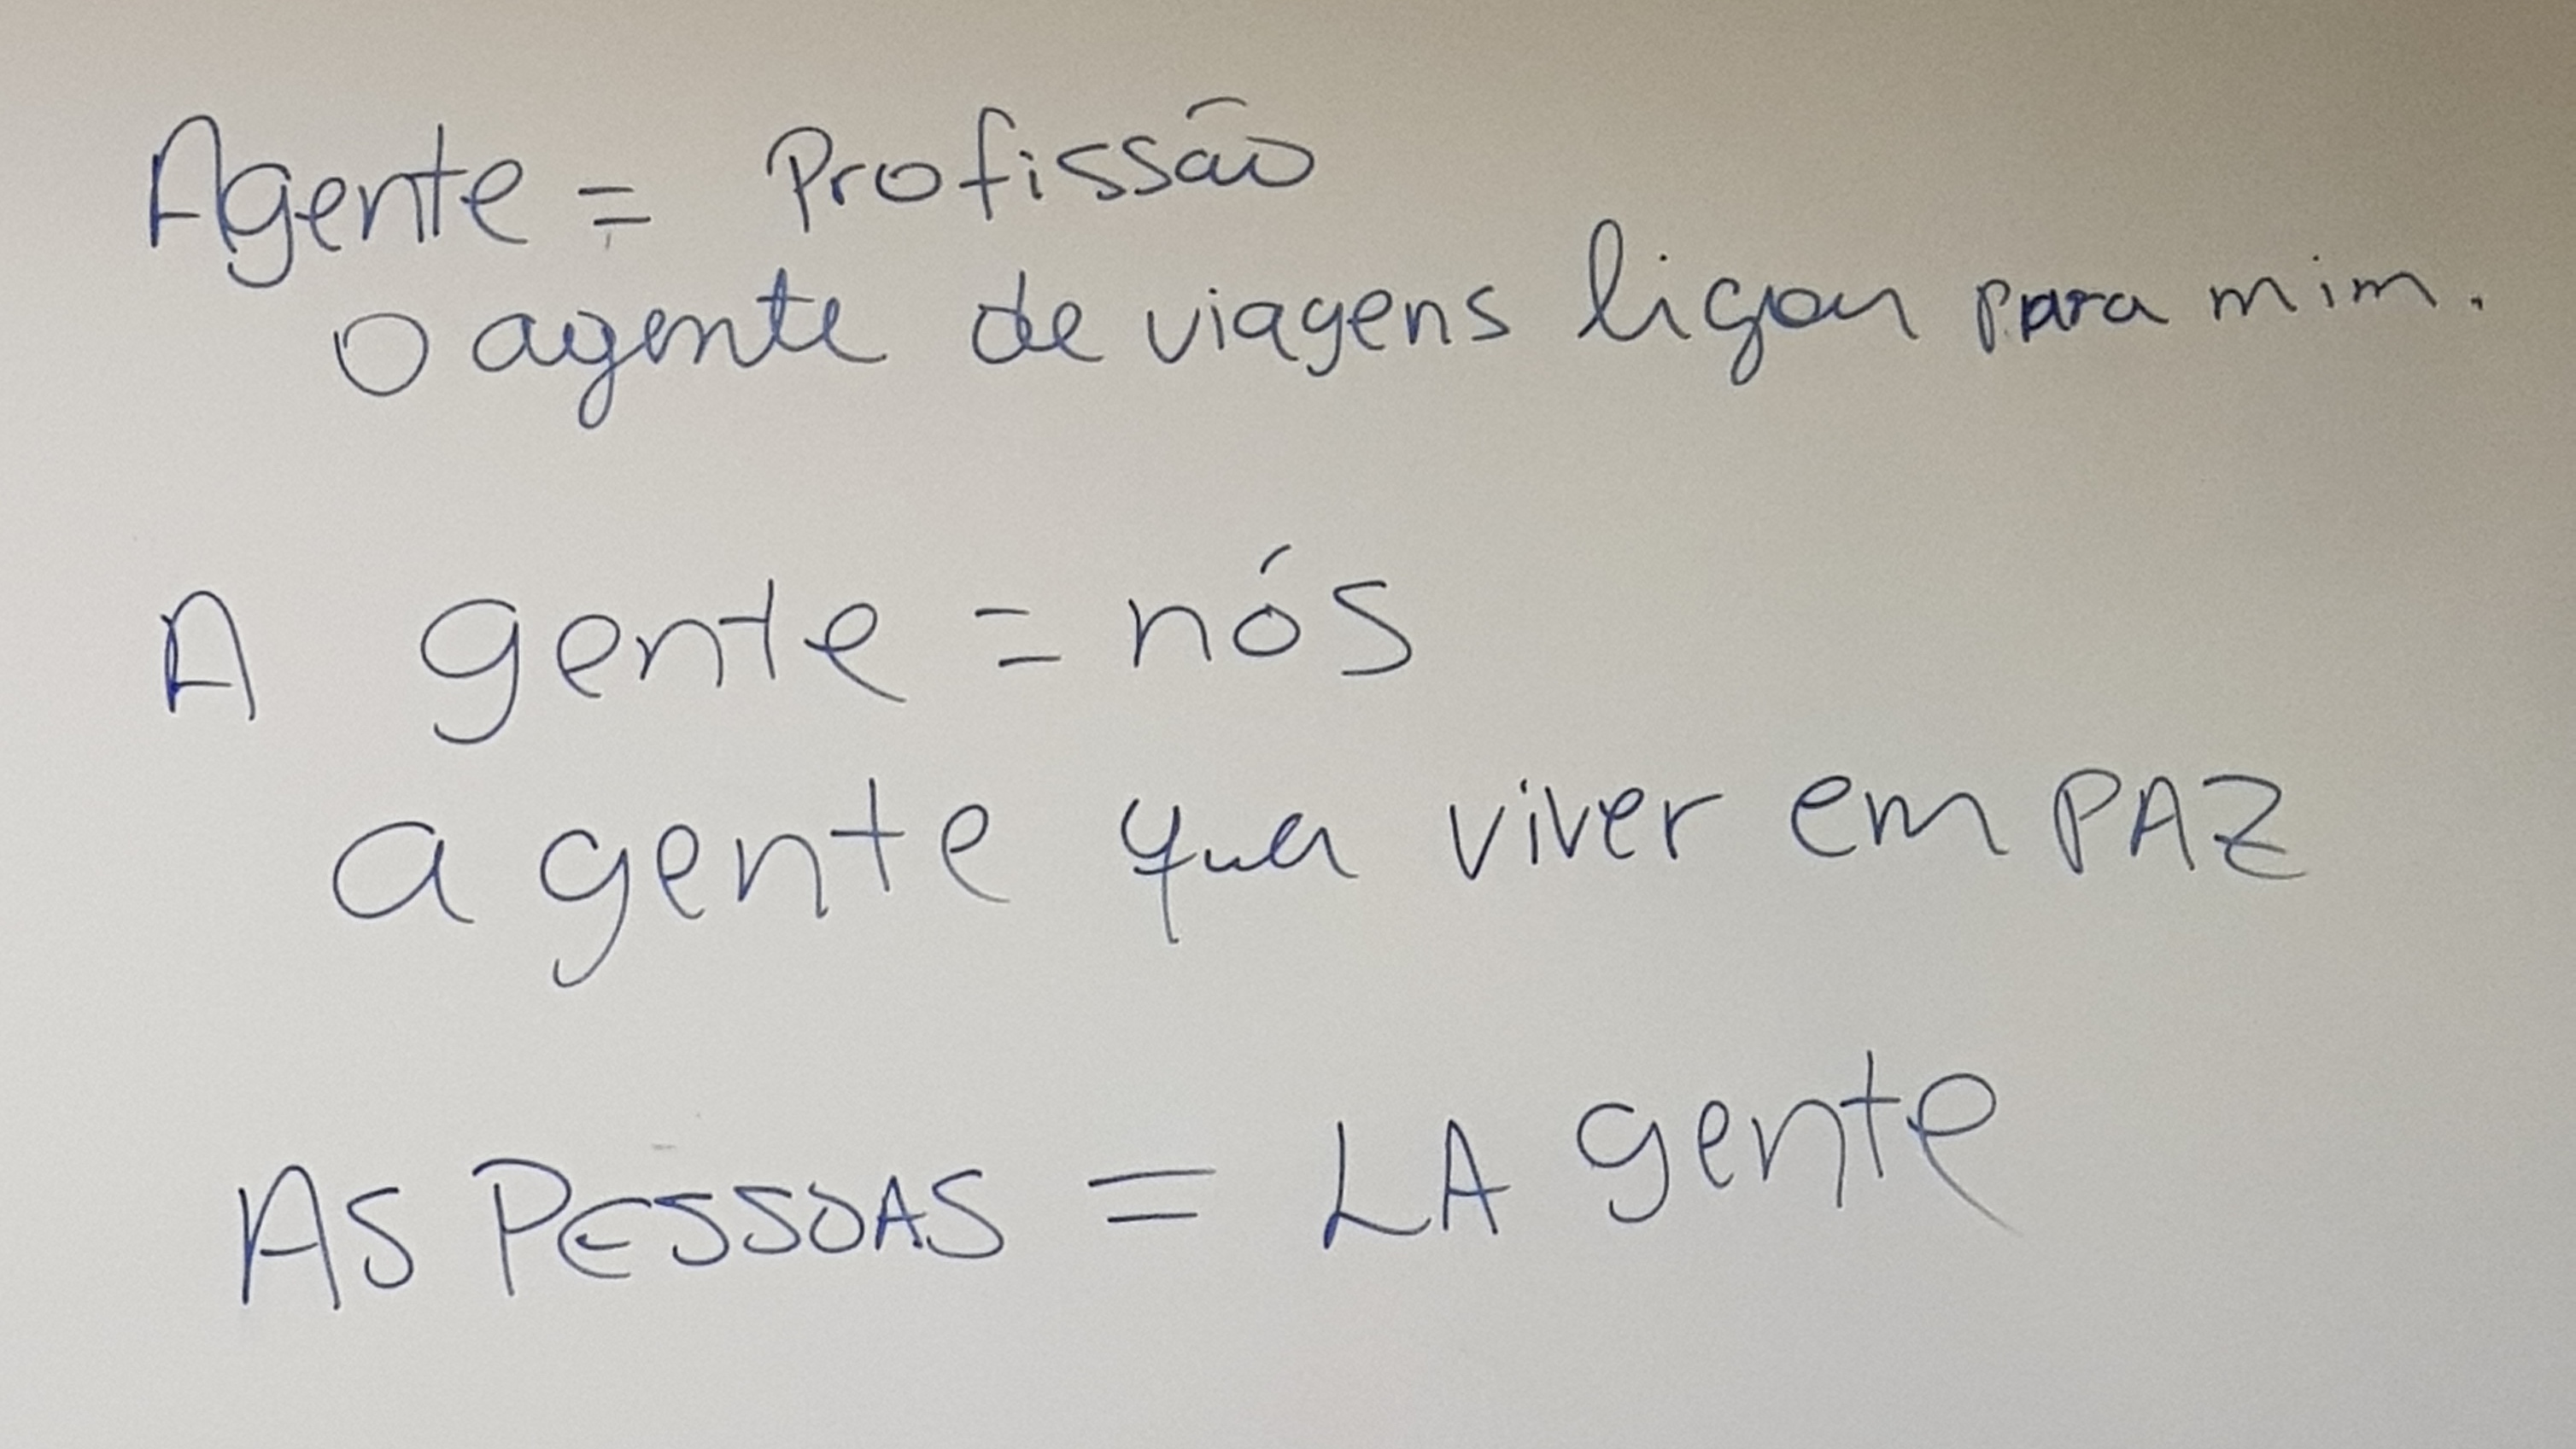 Agente = Profissão
O agente de viagens ligou para mim.
A gente = nós
a gente quer viver em PAZ
AS PESSOAS = LA gente